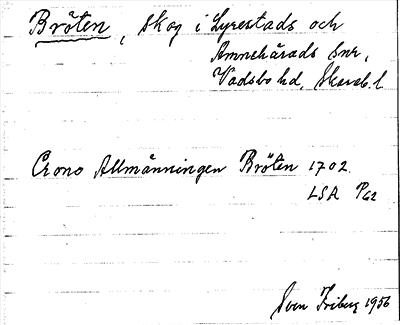 Bröten, skog i Lyrestads och
Amnehärads snr,
Vadsbo hd, Skarab. l
Crono Allmänningen Bröten 1702.
LSA P62
Sven Friberg 1956